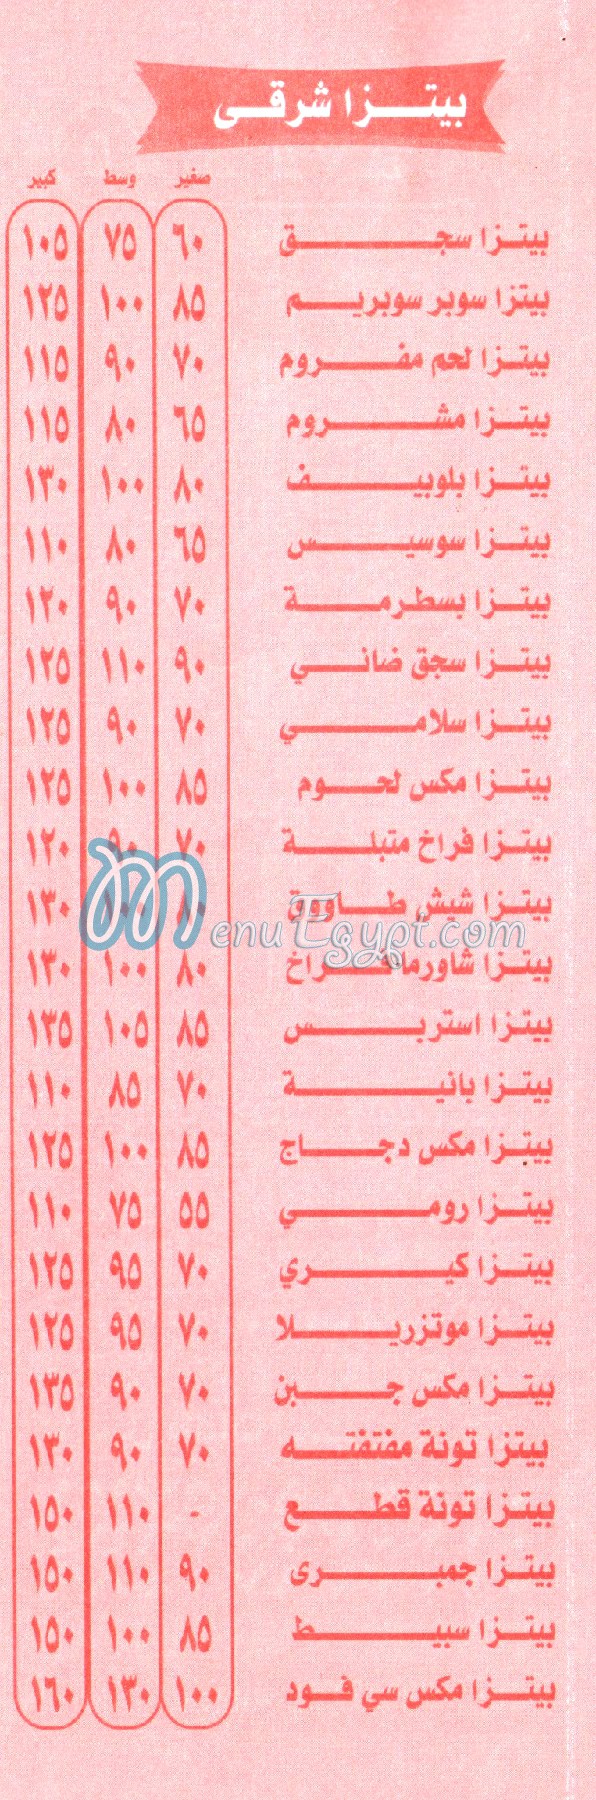 بيتزا شرقى
صغير وسط كبير
بيتزا سجق ٦٠ ٧٥ ١٠٥
بيتزا سوبر سوبريم ٨٥ ١٠٠ ١٢٥
بيتزا لحم مفروم ٧٠ ٩٠ ١١٥
بيتزا مشروم ٦٥ ٨٠ ١١٥
بيتزا بلوبيف ٨٠ ١٠٠ ١٣٠
بيتزا سوسيس ٦٥ ٨٠ ١١٠
بيتزا بسطرمة ٧٠ ٩٠ ١٢٠
بيتزا سجق ضاني ٩٠ ١١٠ ١٢٥
بيتزا سلامي ٧٠ ٩٠ ١٢٥
بيتزا مكس لحوم ٨٥ ١٠٠ ١٢٥
بيتزا فراخ متبلة ٧٠ ٩٠ ١٢٠
بيتزا شيش طاووق ٨٠ ١٠٠ ١٣٠
MenuEgypt.com
بيتزا شاورما فراخ ٨٠ ١٠٠ ١٣٠
بيتزا استربس ٨٥ ١٠٥ ١٣٥
بيتزا بانية ٧٠ ٨٥ ١١٠
بيتزا مكس دجاج ٨٥ ١٠٠ ١٢٥
بيتزا رومي ٥٥ ٧٥ ١١٠
بيتزا كيري ٧٠ ٩٥ ١٢٥
بيتزا موتزريلا ٧٠ ٩٥ ١٢٥
بيتزا مكس جبن ٧٠ ٩٠ ١٣٥
بيتزا تونة مفتفته ٧٠ ٩٠ ١٣٠
بيتزا تونة قطع - ١١٠ ١٥٠
بيتزا جمبرى ٩٠ ١١٠ ١٥٠
بيتزا سبيط ٨٥ ١٠٠ ١٥٠
بيتزا مكس سي فود ١٠٠ ١٣٠ ١٦٠